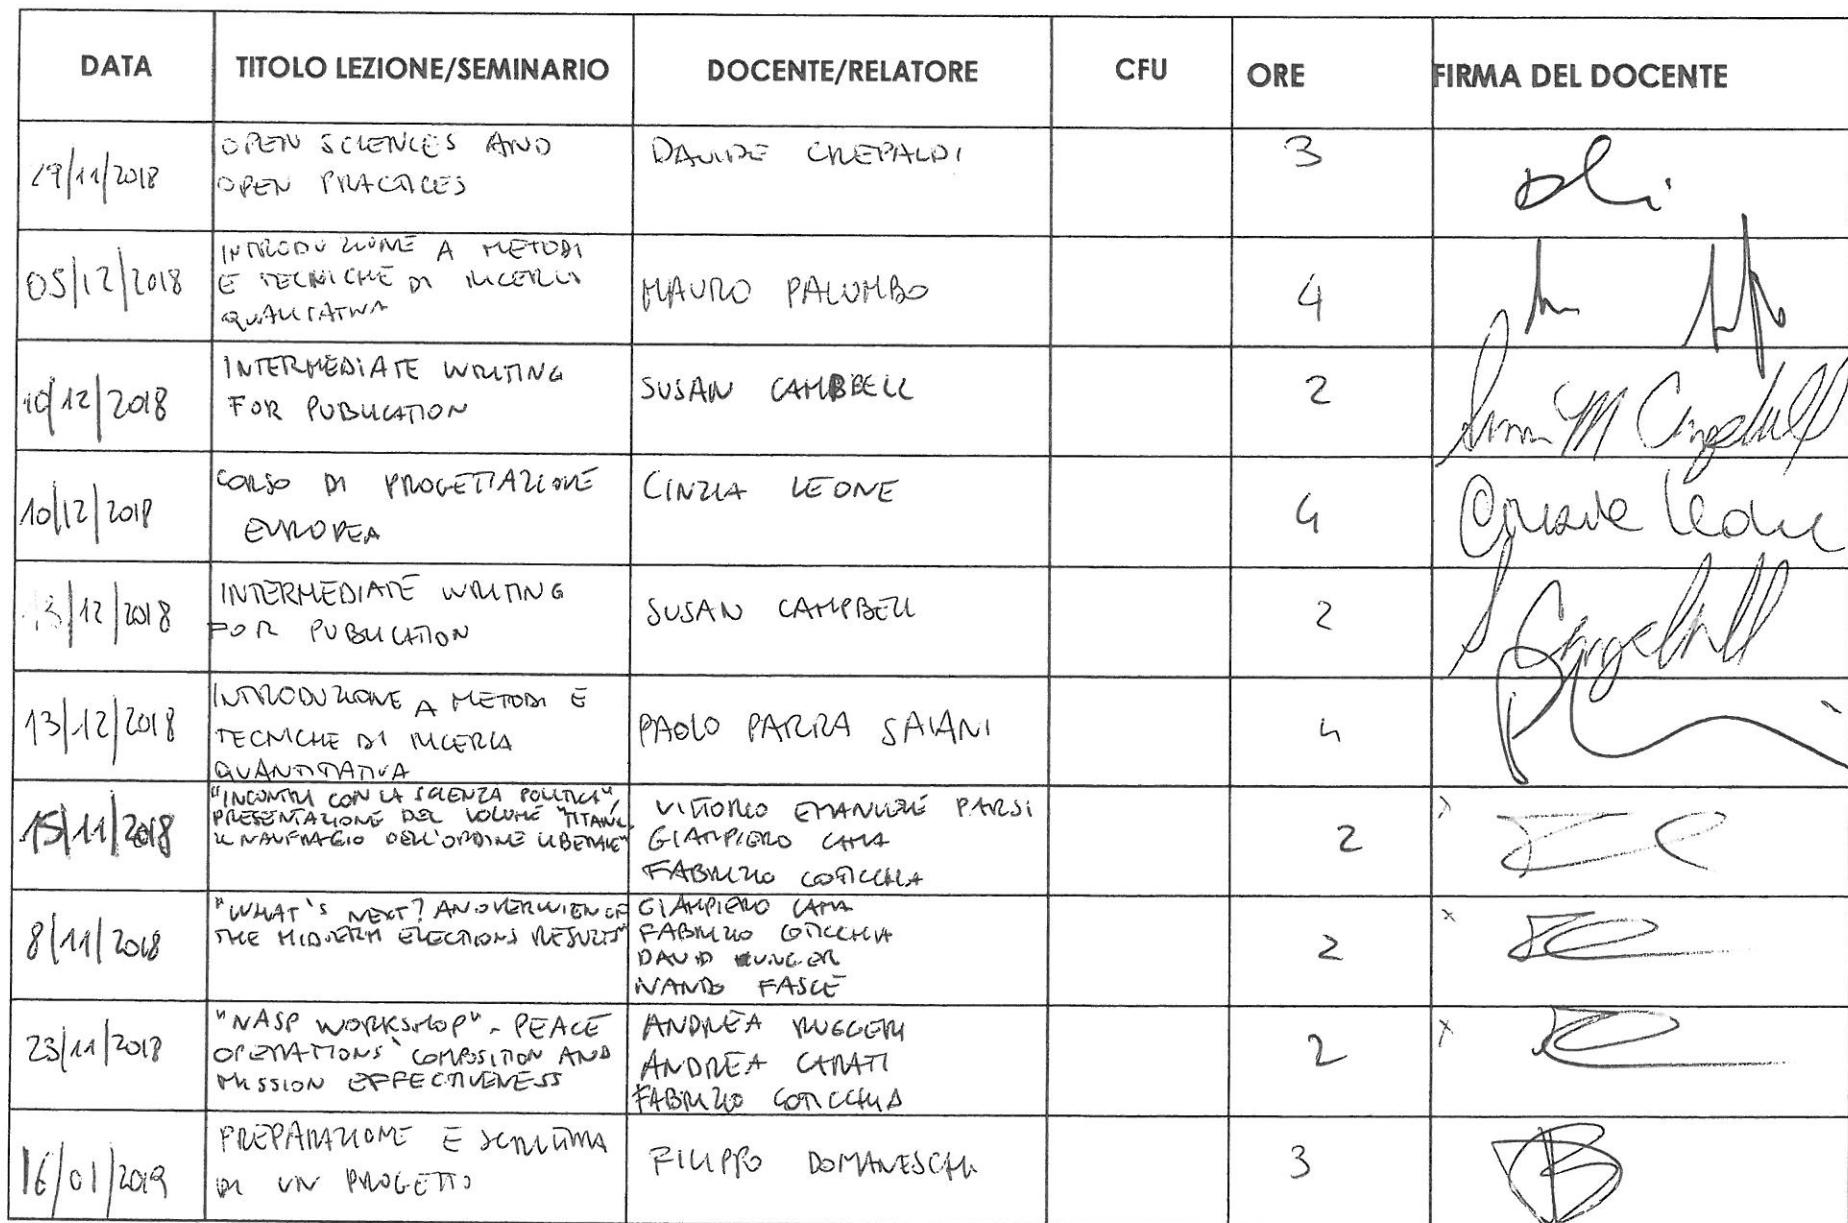 DATA TITOLO LEZIONE/SEMINARIO DOCENTE/RELATORE CFU ORE FIRMA DEL DOCENTE
29/11/2018
OPEN SCIENCES AND
OPEN PRACTICES
DAVIDE CREPALDI
3
05/12/2018
INTRODUZIONE A METODI
E TECNICHE DI RICERCA
QUALITATIVA
MAURO PALUMBO
4
10/12/2018
INTERMEDIATE WRITING
FOR PUBLICATION
SUSAN CAMPBELL
2
Susan M Campbell
10/12/2018
CORSO DI PROGETTAZIONE
EUROPEA
CINZIA LEONE
4
Leone
13/12/2018
INTERMEDIATE WRITING
FOR PUBLICATION
SUSAN CAMPBELL
2
S Campbell
13/12/2018
INTRODUZIONE A METODI E
TECNICHE DI RICERCA
QUANTITATIVA
PAOLO PARRA SAIANI
4
15/11/2018
"INCONTRI CON LA SCIENZA POLITICA",
PRESENTAZIONE DEL VOLUME "TITANIC,
IL NAUFRAGIO DELL'ORDINE LIBERALE"
VITTORIO EMANUELE PARSI
GIAMPIERO CAMA
FABRIZIO COTICCHIA
2
x
8/11/2018
"WHAT'S NEXT? AN OVERVIEW OF
THE MIDTERM ELECTIONS RESULTS"
GIAMPIERO CAMA
FABRIZIO COTICCHIA
DAVID UNGER
NANDO FASCE
2
x
23/11/2018
"NASP WORKSHOP" - PEACE
OPERATIONS' COMPOSITION AND
MISSION EFFECTIVENESS
ANDREA RUGGERI
ANDREA CARATI
FABRIZIO COTICCHIA
2
x
16/01/2019
PREPARAZIONE E SCRITTURA
DI UN PROGETTO
FILIPPO DOMANESCHI
3